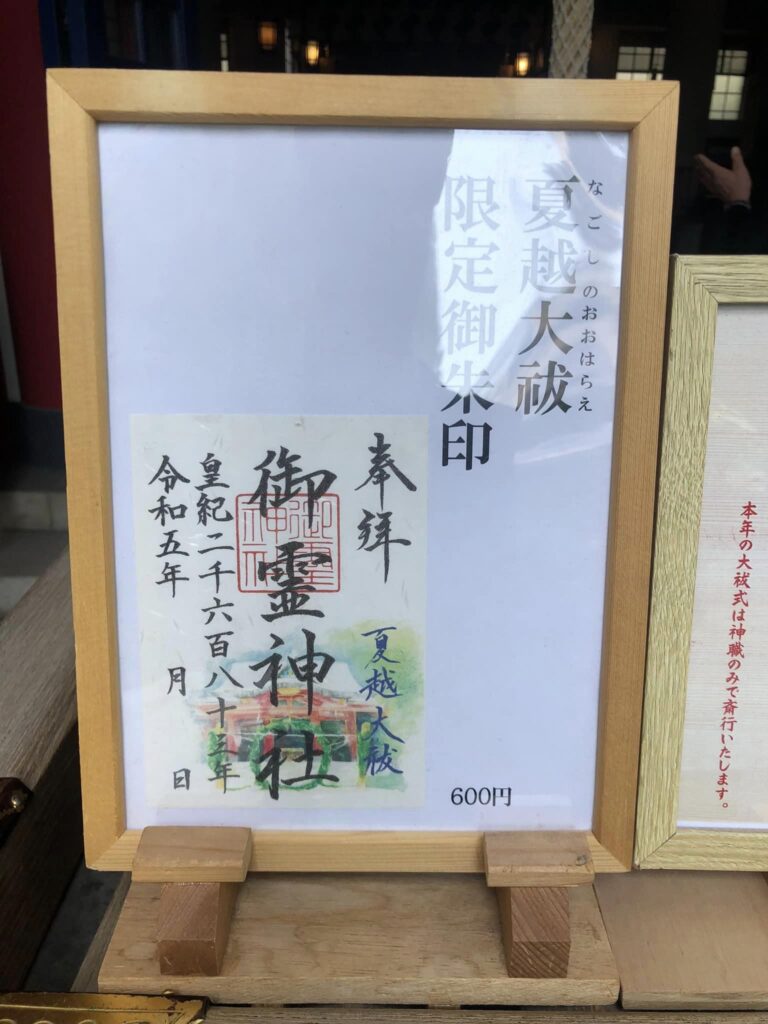 なごしのおおはらえ
夏越大祓
限定御朱印
奉拝
夏越大祓
御霊神社
御霊神社
皇紀二千六百八十三年
令和五年 月 日
600円
本年の大祓式は神職のみで斎行いたします。